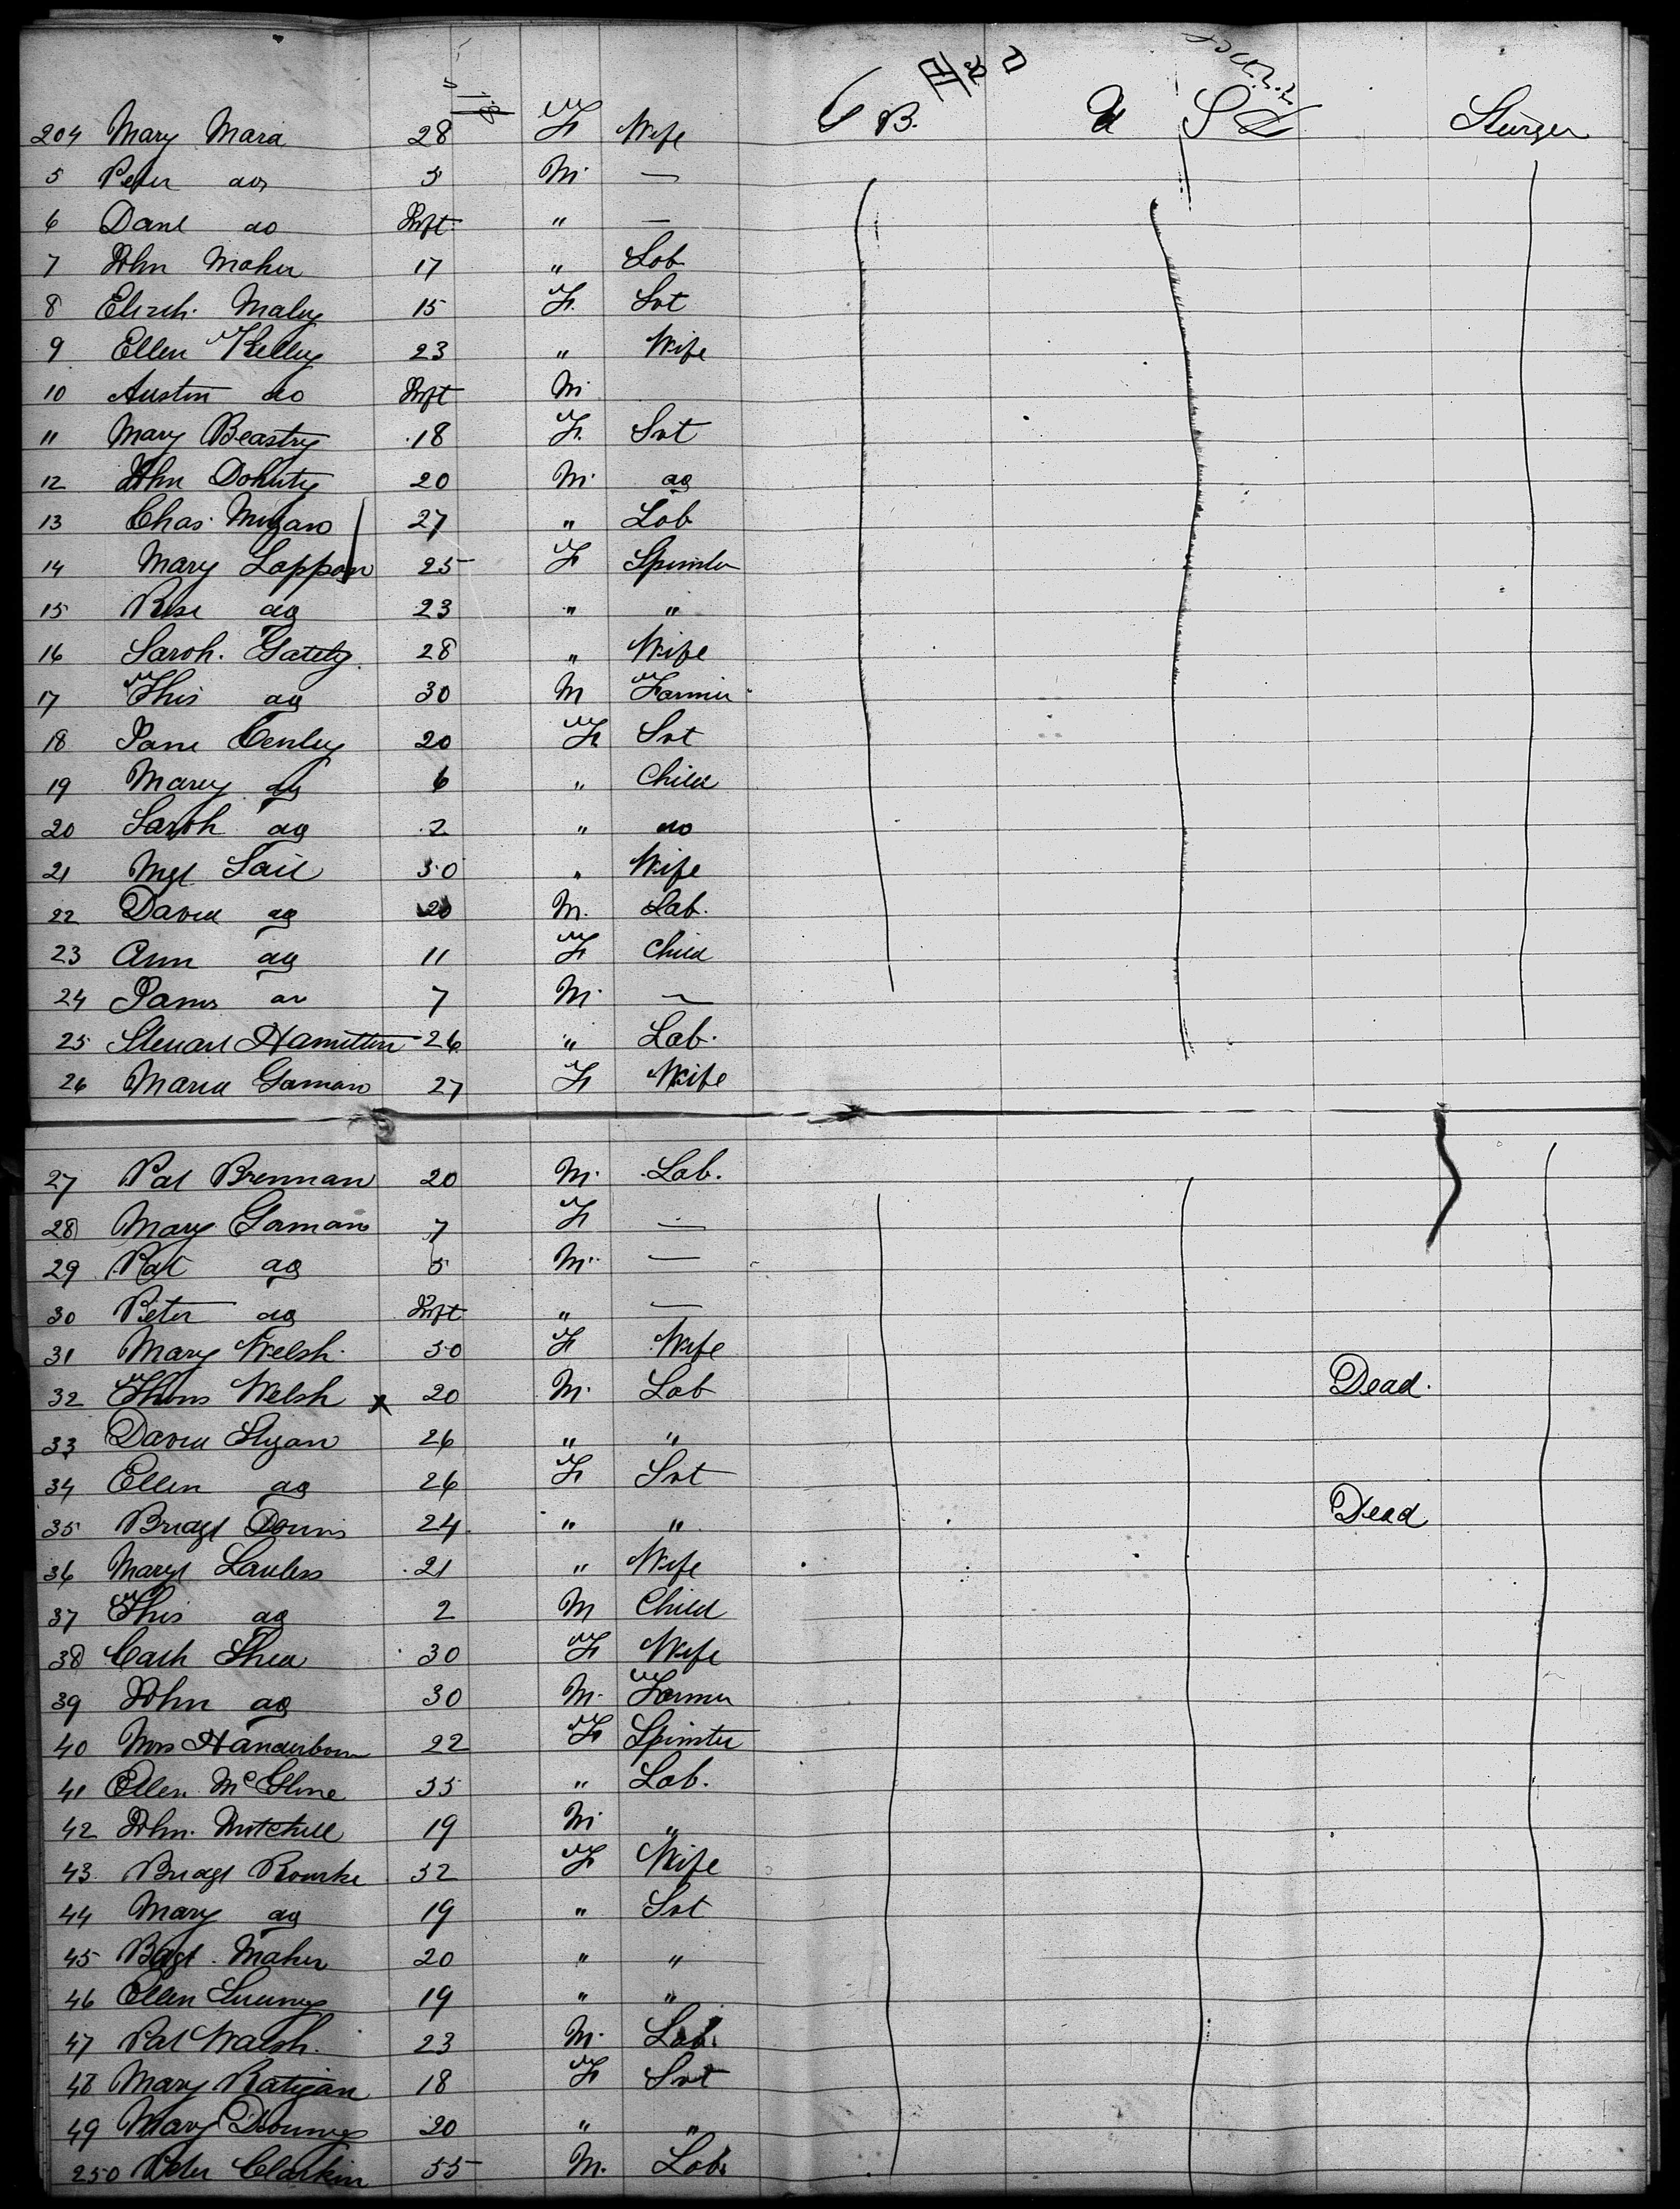 204 Mary Mara 28 F Wife G B. U S S Sturges
5 Peter do 5 M. —
6 Danl do Inft " —
7 John Maher 17 " Lab
8 Elizth. Maley 15 F. Svt
9 Ellen Kelley 23 " Wife
10 Austin do Inft M.
11 Mary Beastry 18 F. Svt
12 John Dohuty 20 M. do
13 Chas. 27 " Lab
14 Mary Lappan 25 F Spinster
15 Rose do 23 " "
16 Sarah. Gately 28 " Wife
17 Thos do 30 M Farmer
18 Jane Cenley 20 F. Svt
19 Mary do 6 " Child
20 Sarah do 2 " do
21 Mgt Sail 50 " Wife
22 David do 20 M. Lab.
23 Ann do 11 F Child
24 James do 7 M. —
25 Steuart Hamilton 26 " Lab.
26 Maria Gaman 27 F Wife
27 Pat Brennan 20 M. Lab.
28 Mary Gaman 7 F —
29 Pat do 5 M. —
30 Peter do Inft " —
31 Mary Welsh 50 F Wife
32 Thos Welsh x 20 M. Lab Dead.
33 David 26 " "
34 Ellen do 26 F Svt
35 Bridgt 24 " " Dead
36 Margt Lawless 21 " Wife
37 Thos do 2 M Child
38 Cath Shea 30 F Wife
39 John do 30 M. Farmer
40 22 F Spinster
41 Ellen 35 " Lab.
42 John. Mitchell 19 M. "
43 Bridgt Rourke 32 F Wife
44 Mary do 19 " Svt
45 Bdgt. Maher 20 " "
46 Ellen 19 " "
47 Pat Walsh. 23 M. Lab.
48 Mary Ratigan 18 F Svt
49 Mary Downey 20 " "
250 Peter Clarkin 55 M. Lab.